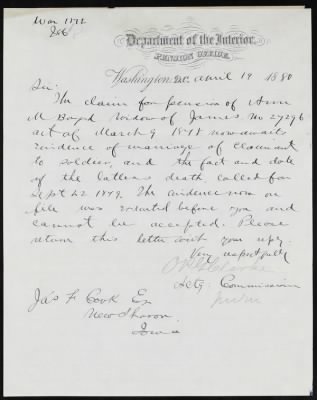 War 1812
Department of the Interior,
PENSION OFFICE,
Washington, D.C. April 19 1880
Sir:
The claim for pension of Ann
M Boyd widow of James No 27296
act of March 9 1878 now awaits
evidence of marriage of claimant
to soldier, and the fact and date
of the latters death called for
Sept 22 1879. The evidence now on
file was executed before you and
cannot be accepted. Please
return this letter with your reply.
Very respectfully
O P G Clarke
Actg Commissioner
Jas F Cook Esq
New Sharon
Iowa